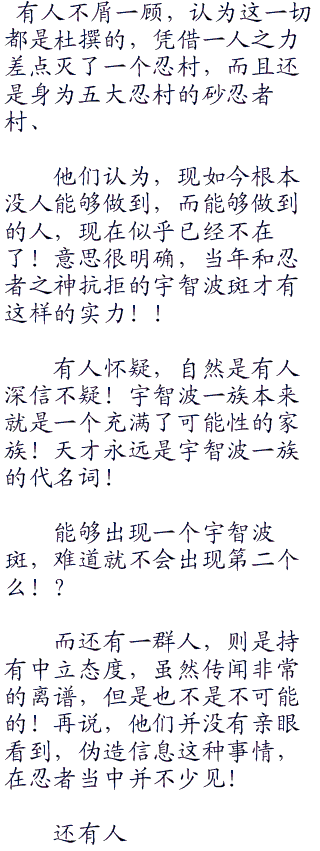 有人不屑一顾，认为这一切
都是杜撰的，凭借一人之力
差点灭了一个忍村，而且还
是身为五大忍村的砂忍者
村、
他们认为，现如今根本
没人能够做到，而能够做到
的人，现在似乎已经不在
了！意思很明确，当年和忍
者之神抗拒的宇智波斑才有
这样的实力！！
有人怀疑，自然是有人
深信不疑！宇智波一族本来
就是一个充满了可能性的家
族！天才永远是宇智波一族
的代名词！
能够出现一个宇智波
斑，难道就不会出现第二个
么！？
而还有一群人，则是持
有中立态度，虽然传闻非常
的离谱，但是也不是不可能
的！再说，他们并没有亲眼
看到，伪造信息这种事情，
在忍者当中并不少见！
还有人